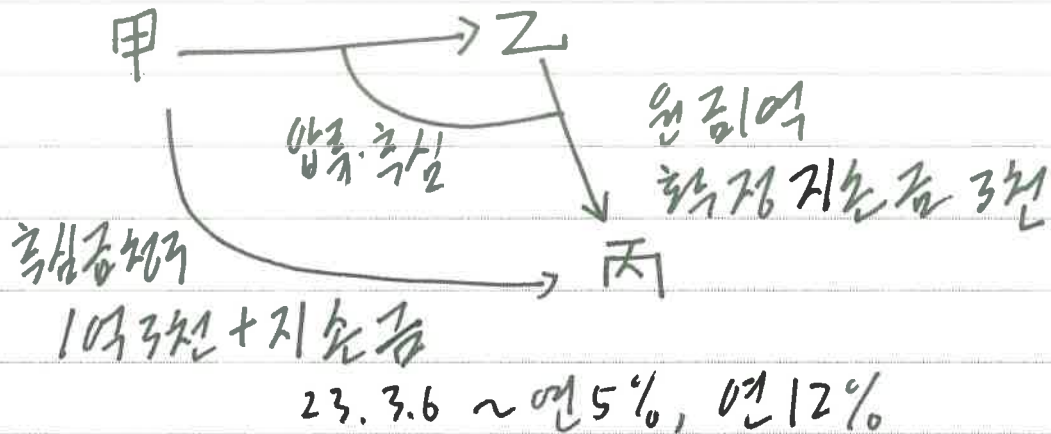 甲 乙
압류·추심
원금1억
확정지손금 3천
丙
추심금청구
1억3천+지손금
23.3.6 ~ 연5%, 연12%